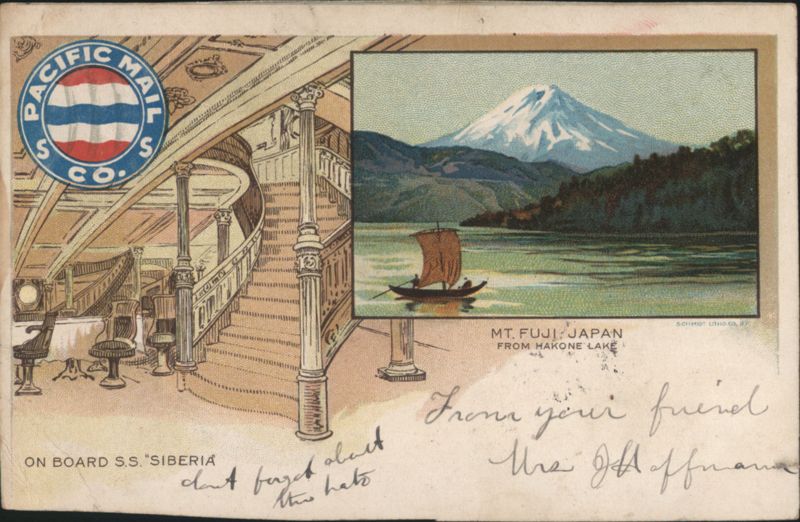 PACIFIC MAIL
S S
CO.
MT. FUJI, JAPAN
FROM HAKONE LAKE
SCHMIDT LITHO. CO. S.F.
From your friend
Mrs J Hoffmann
ON BOARD S.S. "SIBERIA"
dont forget about
the hats